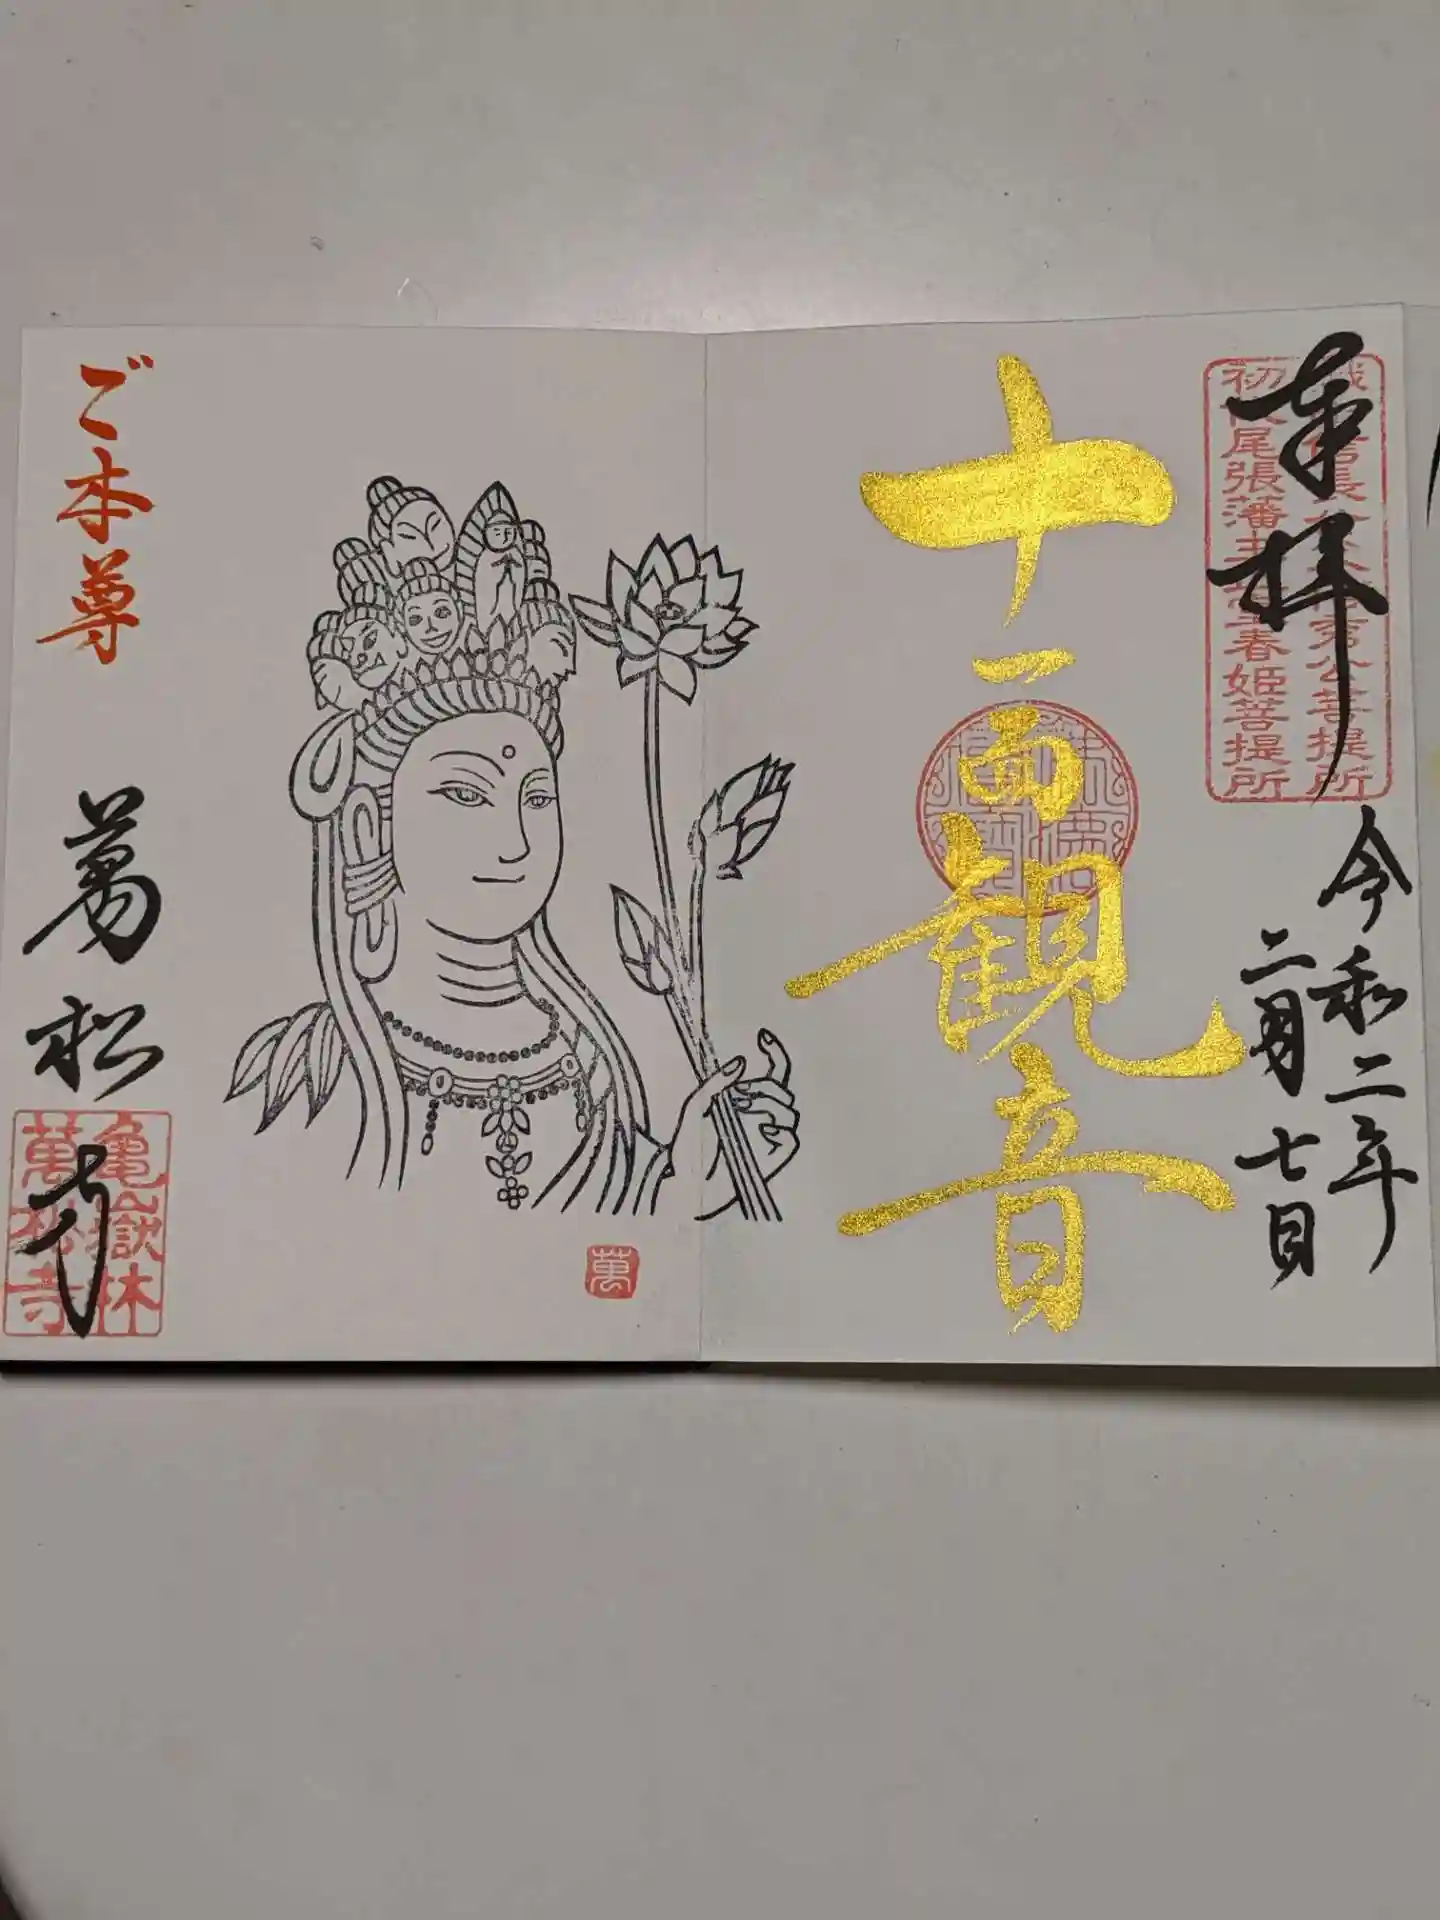 奉拝
令和二年
二月七日
初代尾張藩主正室春姫菩提所
十一面観音
ご本尊
萬松寺
亀嶽林
萬松寺
萬